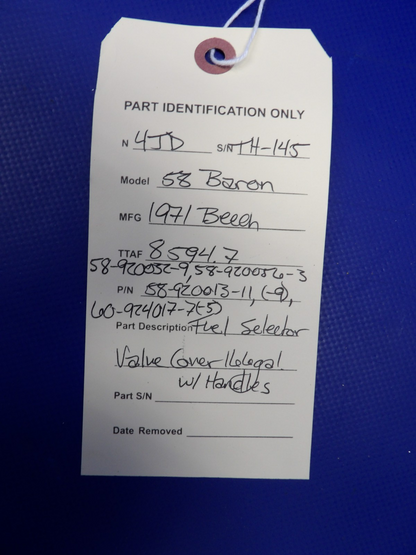 PART IDENTIFICATION ONLY
N 4JD S/N TH-145
Model 58 Baron
MFG 1971 Beech
TTAF 8594.7
58-920032-9, 58-920036-3
P/N 58-920013-11, (-9),
60-924017-7(-5)
Part Description Fuel Selector
Valve Cover
w/ Handles
Part S/N
Date Removed